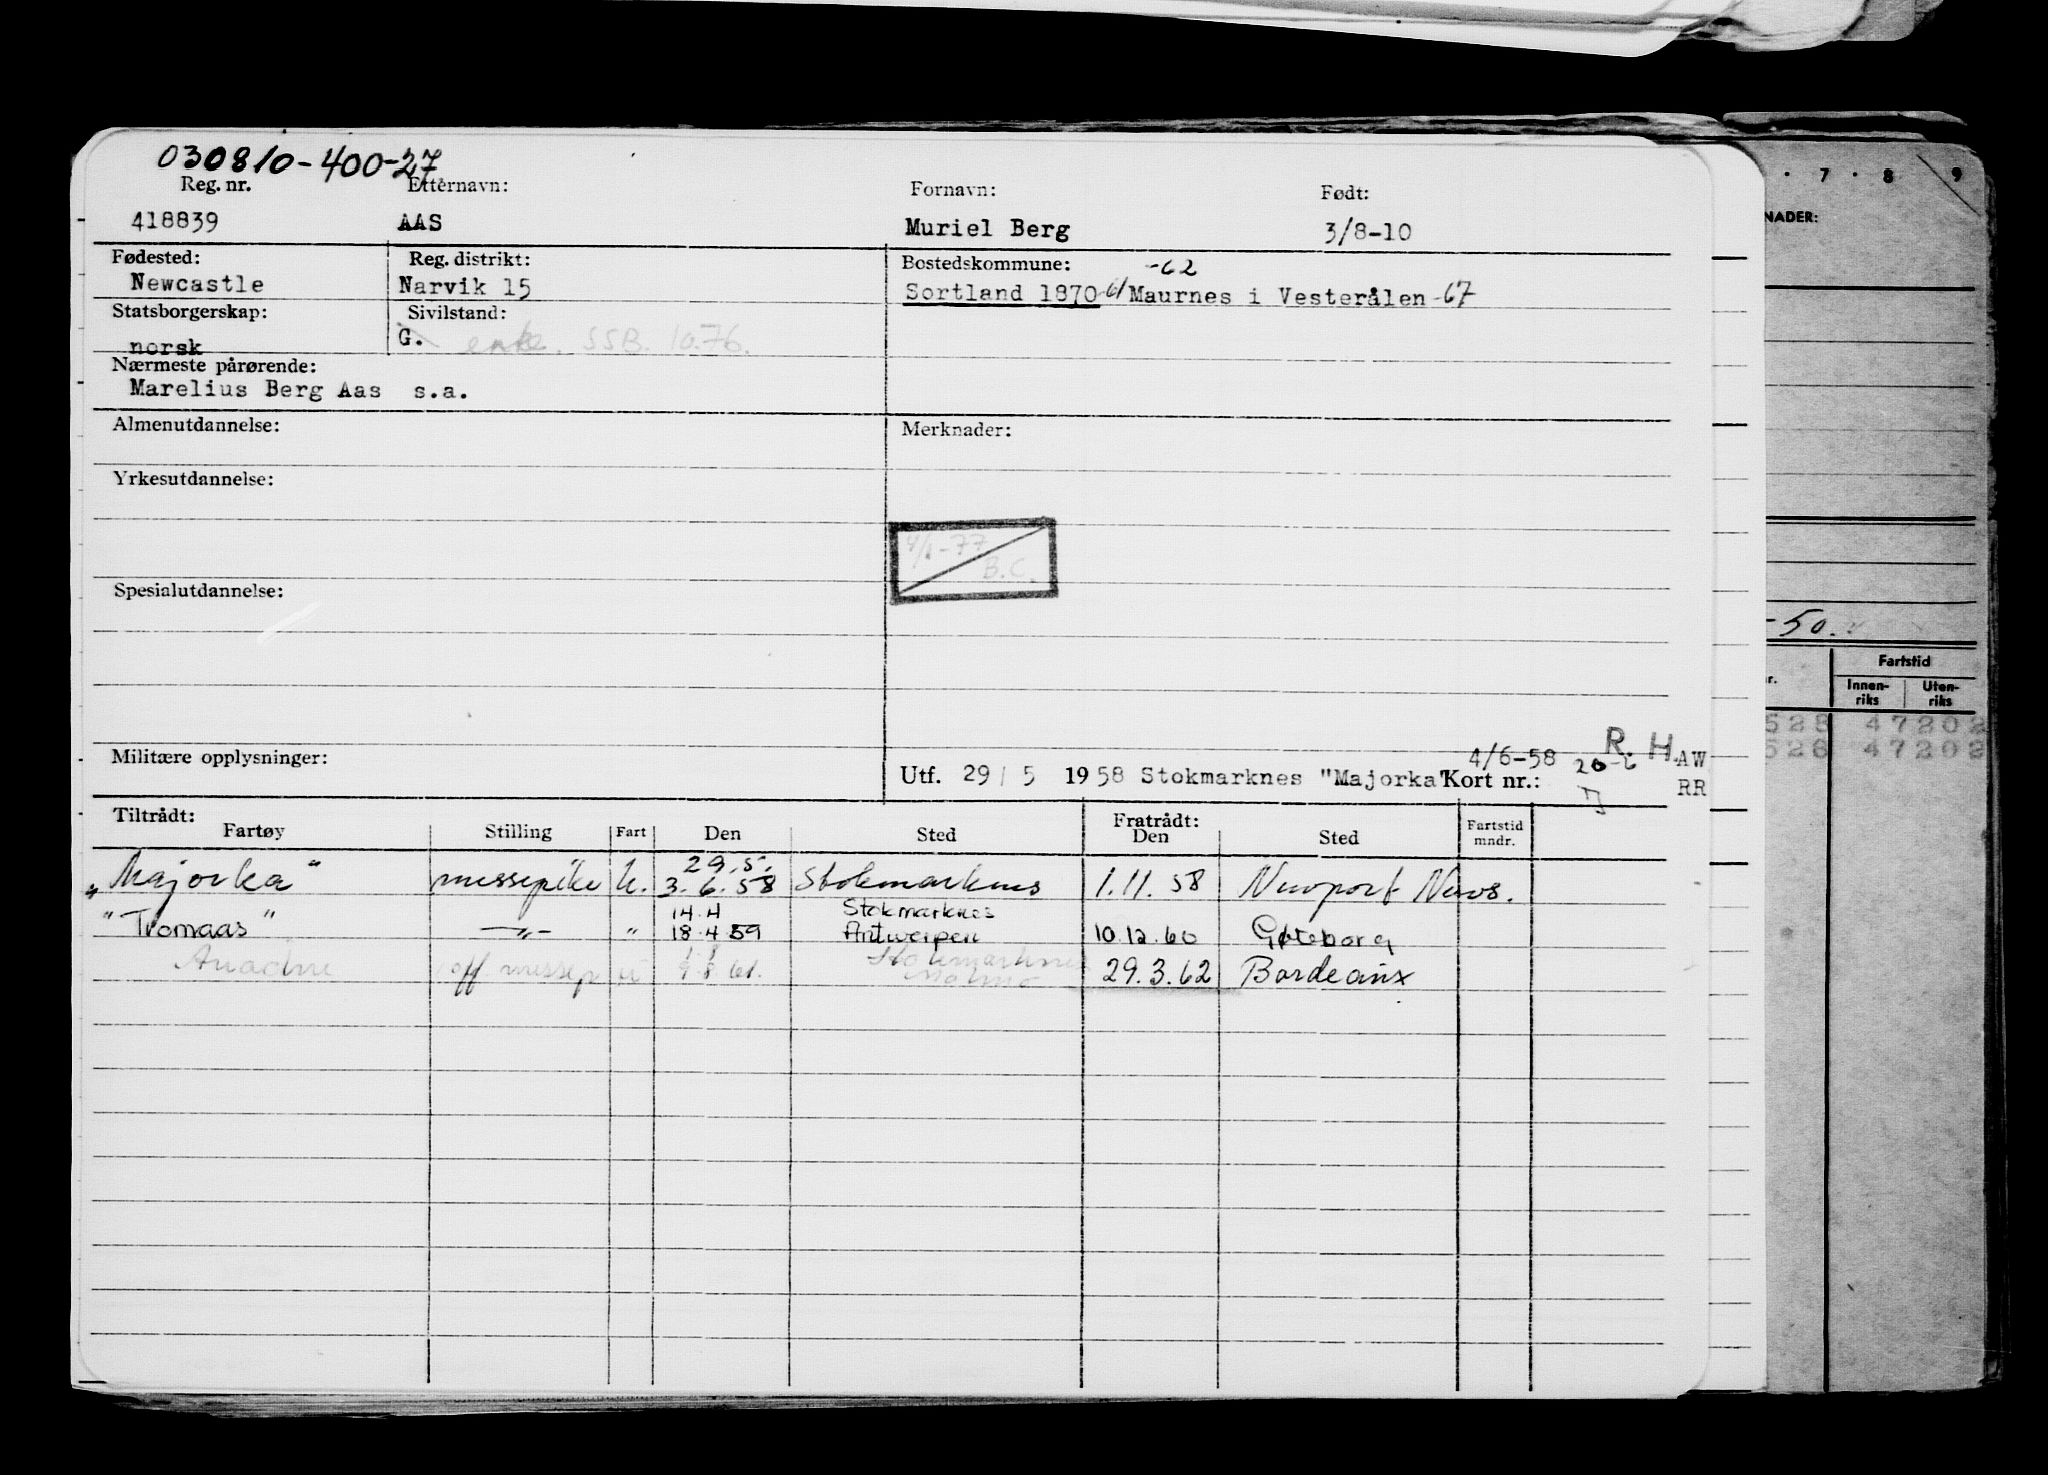 030810-400-27
Reg. nr. Etternavn: Fornavn: Født:
418839 AAS Muriel Berg 3/8-10
Fødested: Reg. distrikt: Bostedskommune: -62
Newcastle Narvik 15 Sortland 1870-61/Maurnes i Vesterålen -67
Statsborgerskap: Sivilstand:
norsk G. enke. SSB. 10.76.
Nærmeste pårørende:
Marelius Berg Aas s.a.
Almenutdannelse: Merknader:
Yrkesutdannelse:
4/1-77
B.C.
Spesialutdannelse:
Militære opplysninger:
4/6-58 R. H. AW
Utf. 29/5 1958 Stokmarknes "Majorka" Kort nr.: RR
Tiltrådt: Fratrådt:
Fartøy Stilling Fart Den Sted Den Sted Fartstid mndr.
29.5.
"Majorka" messepike u. 3.6.58 Stokmarknes 1.11.58 Newport News.
14.4 Stokmarknes
"Tromaas" —"— " 18.4 59 Antwerpen 10.12.60 Gøteborg
1.8 Stokmarknes
Ariadne off messep u 9.8.61. Malmø 29.3.62 Bordeaux
7 · 8 9
NADER:
-50.
Fartstid
r. Innen-riks Uten-riks
528 47202
528 47202